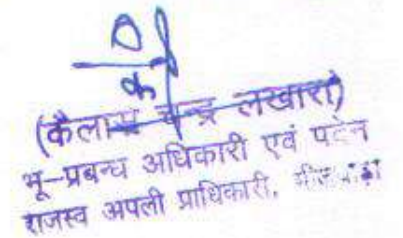 (कैलाश चन्द्र लखारा)
भू-प्रबन्ध अधिकारी एवं पदेन
राजस्व अपली प्राधिकारी,